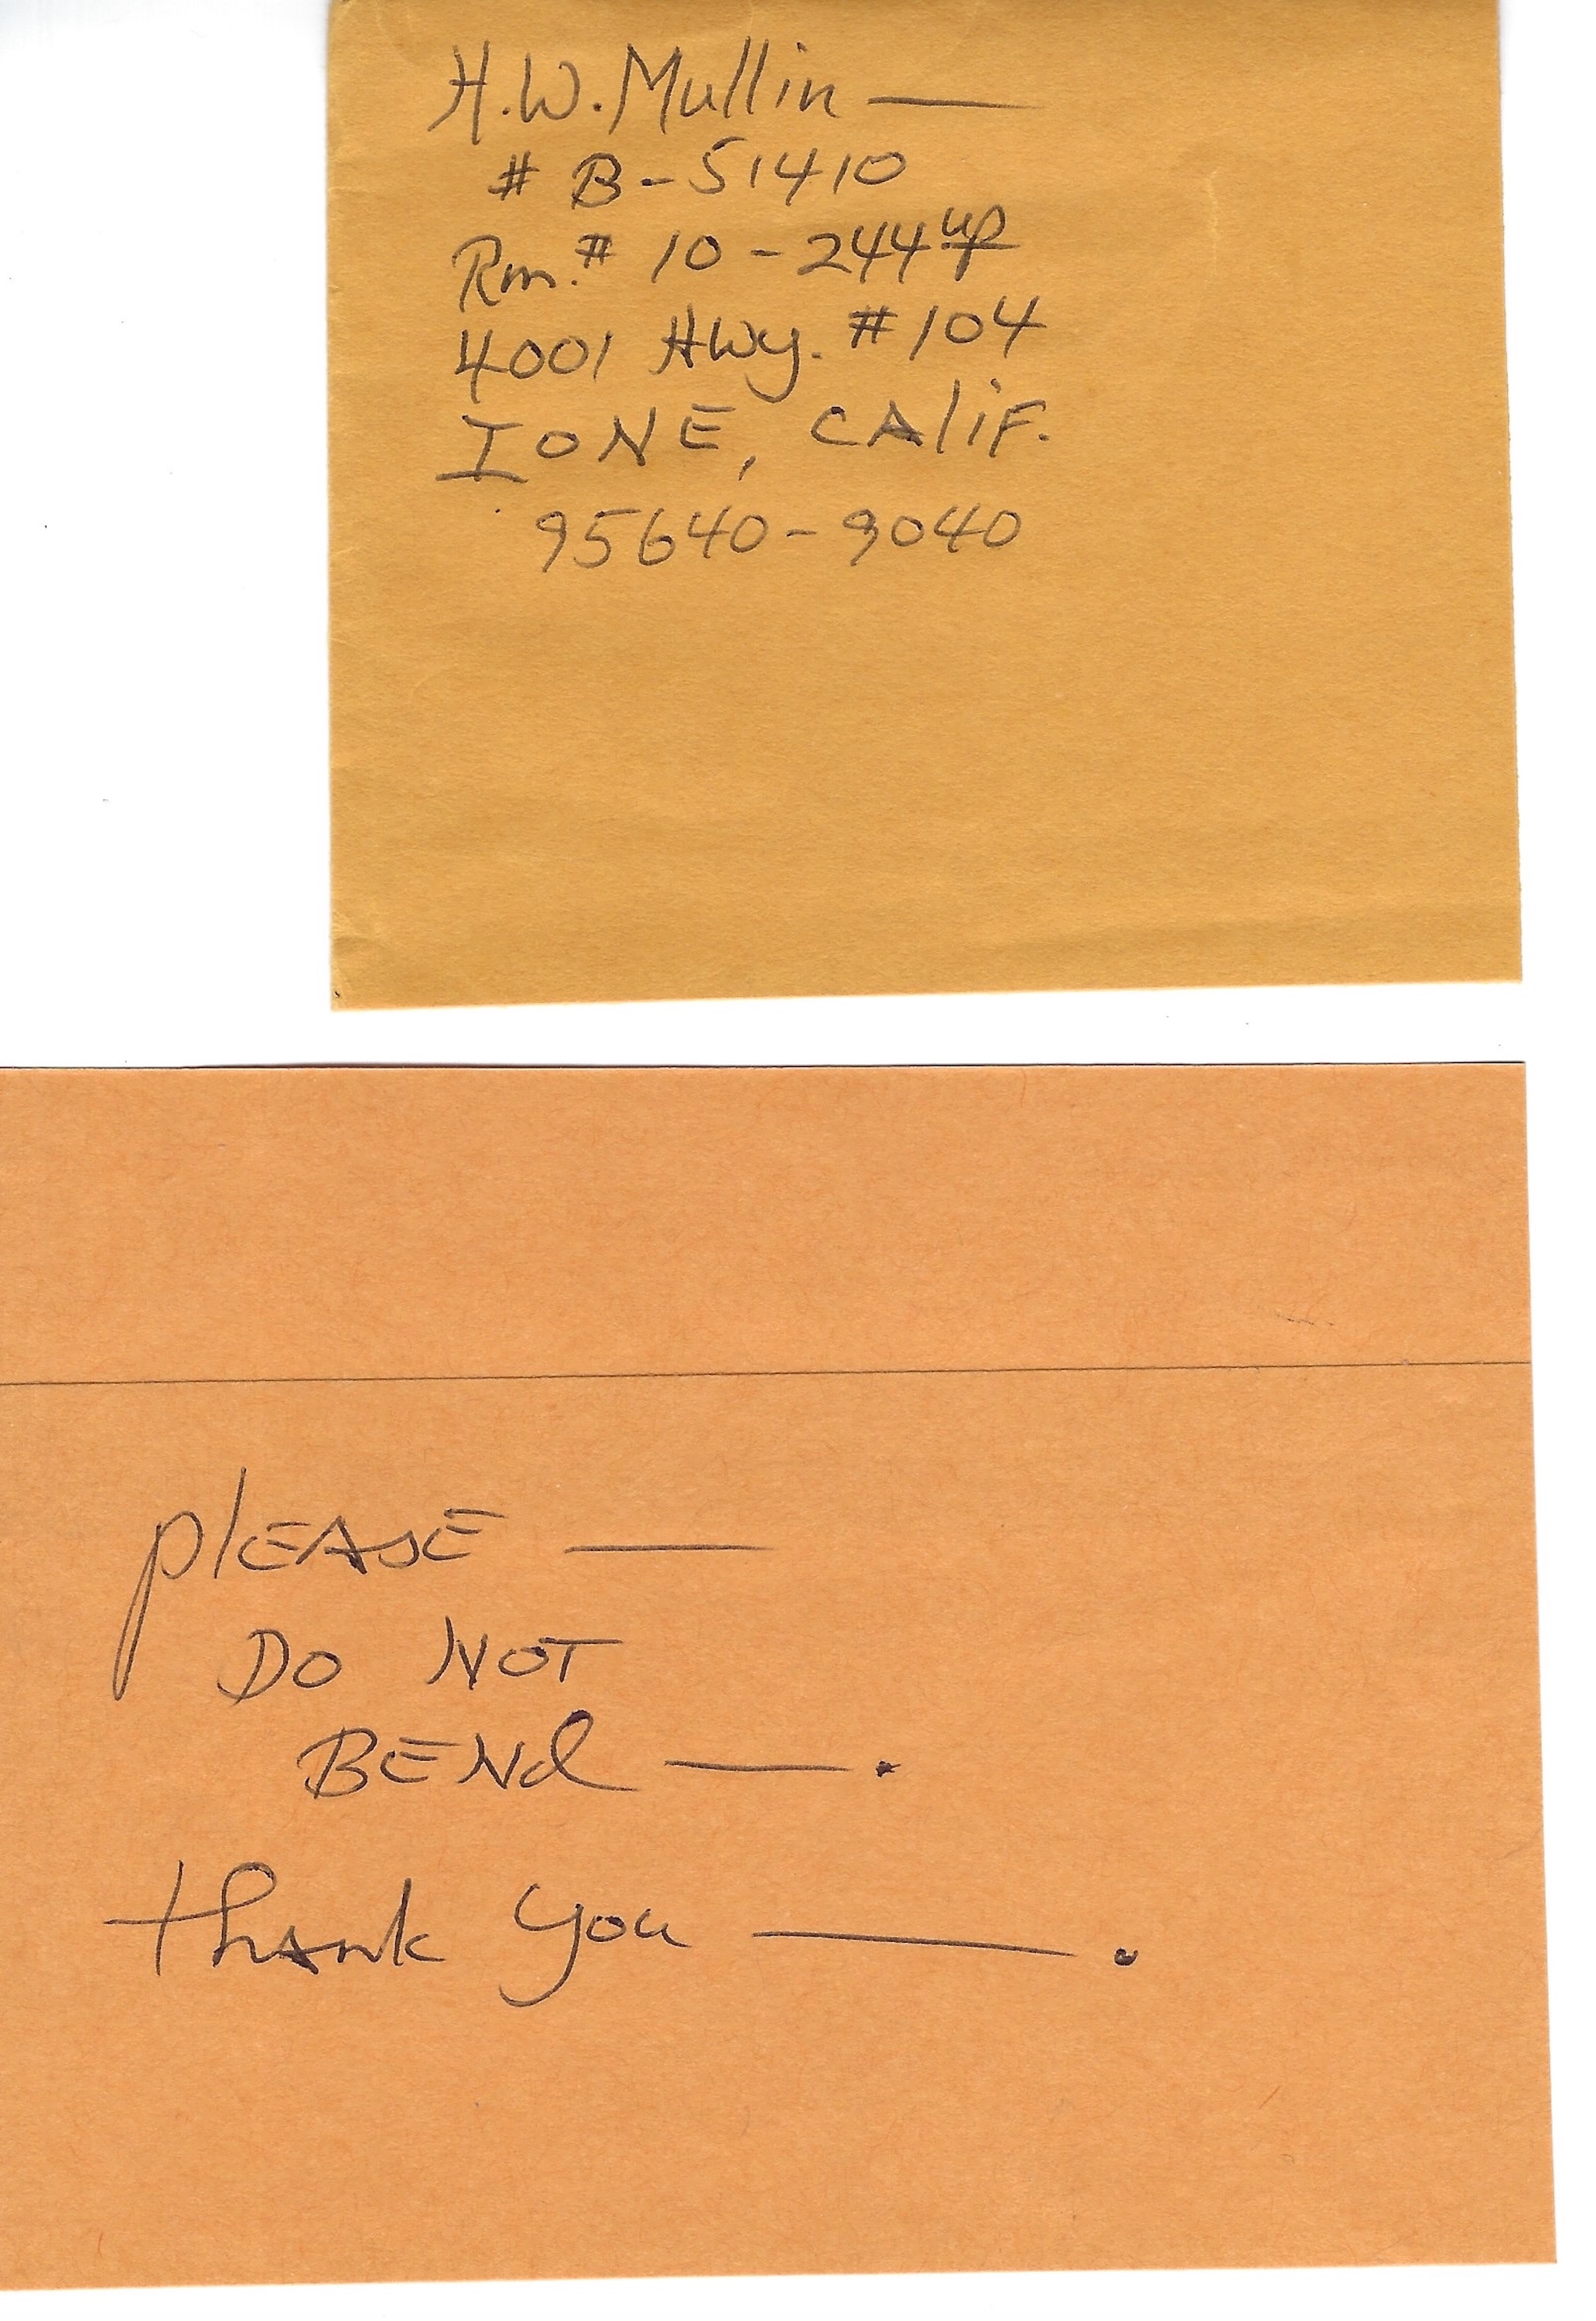 H.W. Mullin —
# B-51410
Rm. # 10-244up
4001 Hwy. #104
IONE, CAliF.
95640-9040
plEASE —
DO NOT
BENd — .
thAnk you — .